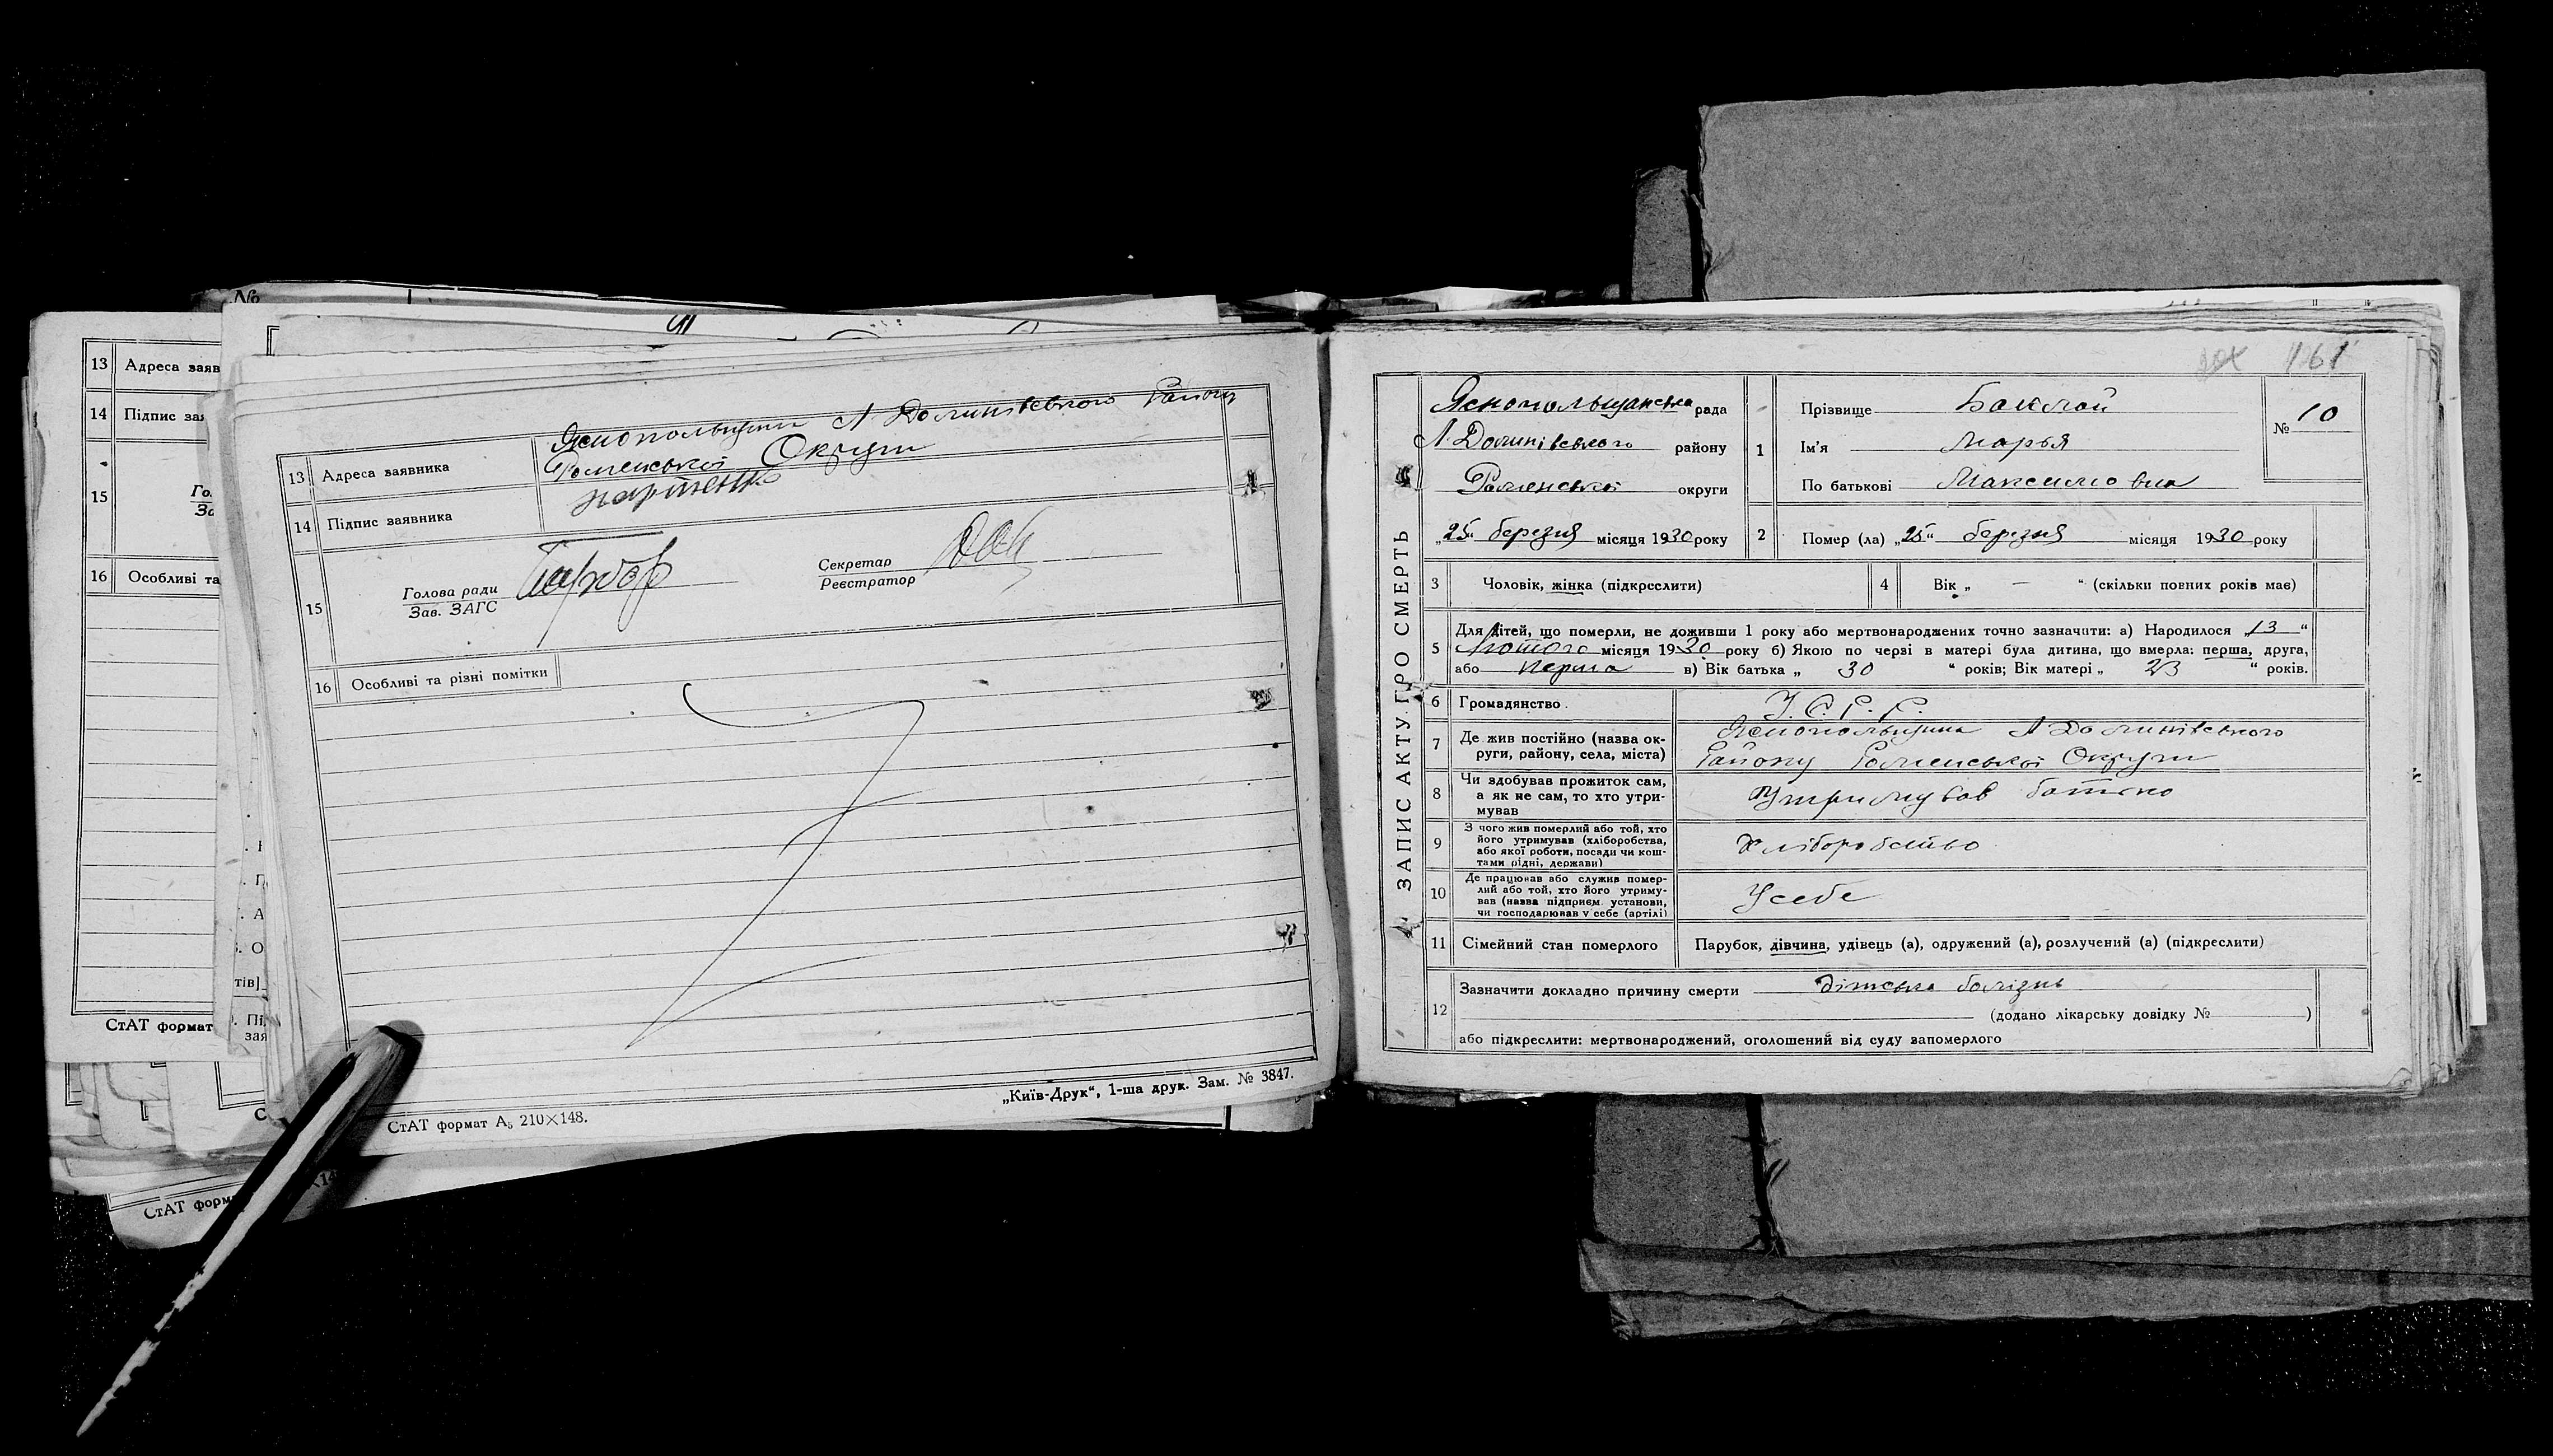 №
13 Адреса заяв
14 Підпис зая
15
Го
За
16 Особливі та
СтАТ формат
тів]
заяв
СтАТ форм
13 Адреса заявника Яснопольщини Л Долинівського Району
Роменської Округи
14 Підпис заявника
15 Голова ради
Зав. ЗАГС
Секретар
Реєстратор
16 Особливі та різні помітки
СтАТ формат А5 210×148.
„Київ-Друк“, 1-ша друк. Зам. № 3847.
161
ЗАПИС АКТУ ПРО СМЕРТЬ
Яснопольщанська рада
Л. Долинівського району
Роменської округи
„25“ березня місяця 1930 року
1 Прізвище Баклай
Ім'я Марья
По батькові Максимовна
№ 10
2 Помер (ла) „25“ березня місяця 1930 року
3 Чоловік, жінка (підкреслити)
4 Вік „ — “ (скільки повних років має)
5 Для дітей, що померли, не доживши 1 року або мертвонароджених точно зазначити: а) Народилося „13“
Лютого місяця 1930 року б) Якою по черзі в матері була дитина, що вмерла: перша, друга,
або перша в) Вік батька „ 30 “ років; Вік матері „ 23 “ років.
6 Громадянство У. С. Р. Р.
7 Де жив постійно (назва округи, району, села, міста) Яснопольщина Л Долинівського
Району Роменської Округи
8 Чи здобував прожиток сам, а як не сам, то хто утримував Утримував батько
9 З чого жив померлий або той, хто його утримував (хліборобства, або якої роботи, посади чи коштами рідні, держави) Хліборобство
10 Де працював або служив померлий або той, хто його утримував (назва підприєм. установи, чи господарював у себе (артілі) У себе
11 Сімейний стан померлого Парубок, дівчина, удівець (а), одружений (а), розлучений (а) (підкреслити)
12 Зазначити докладно причину смерти дітська болізнь
(додано лікарську довідку № )
або підкреслити: мертвонароджений, оголошений від суду запомерлого